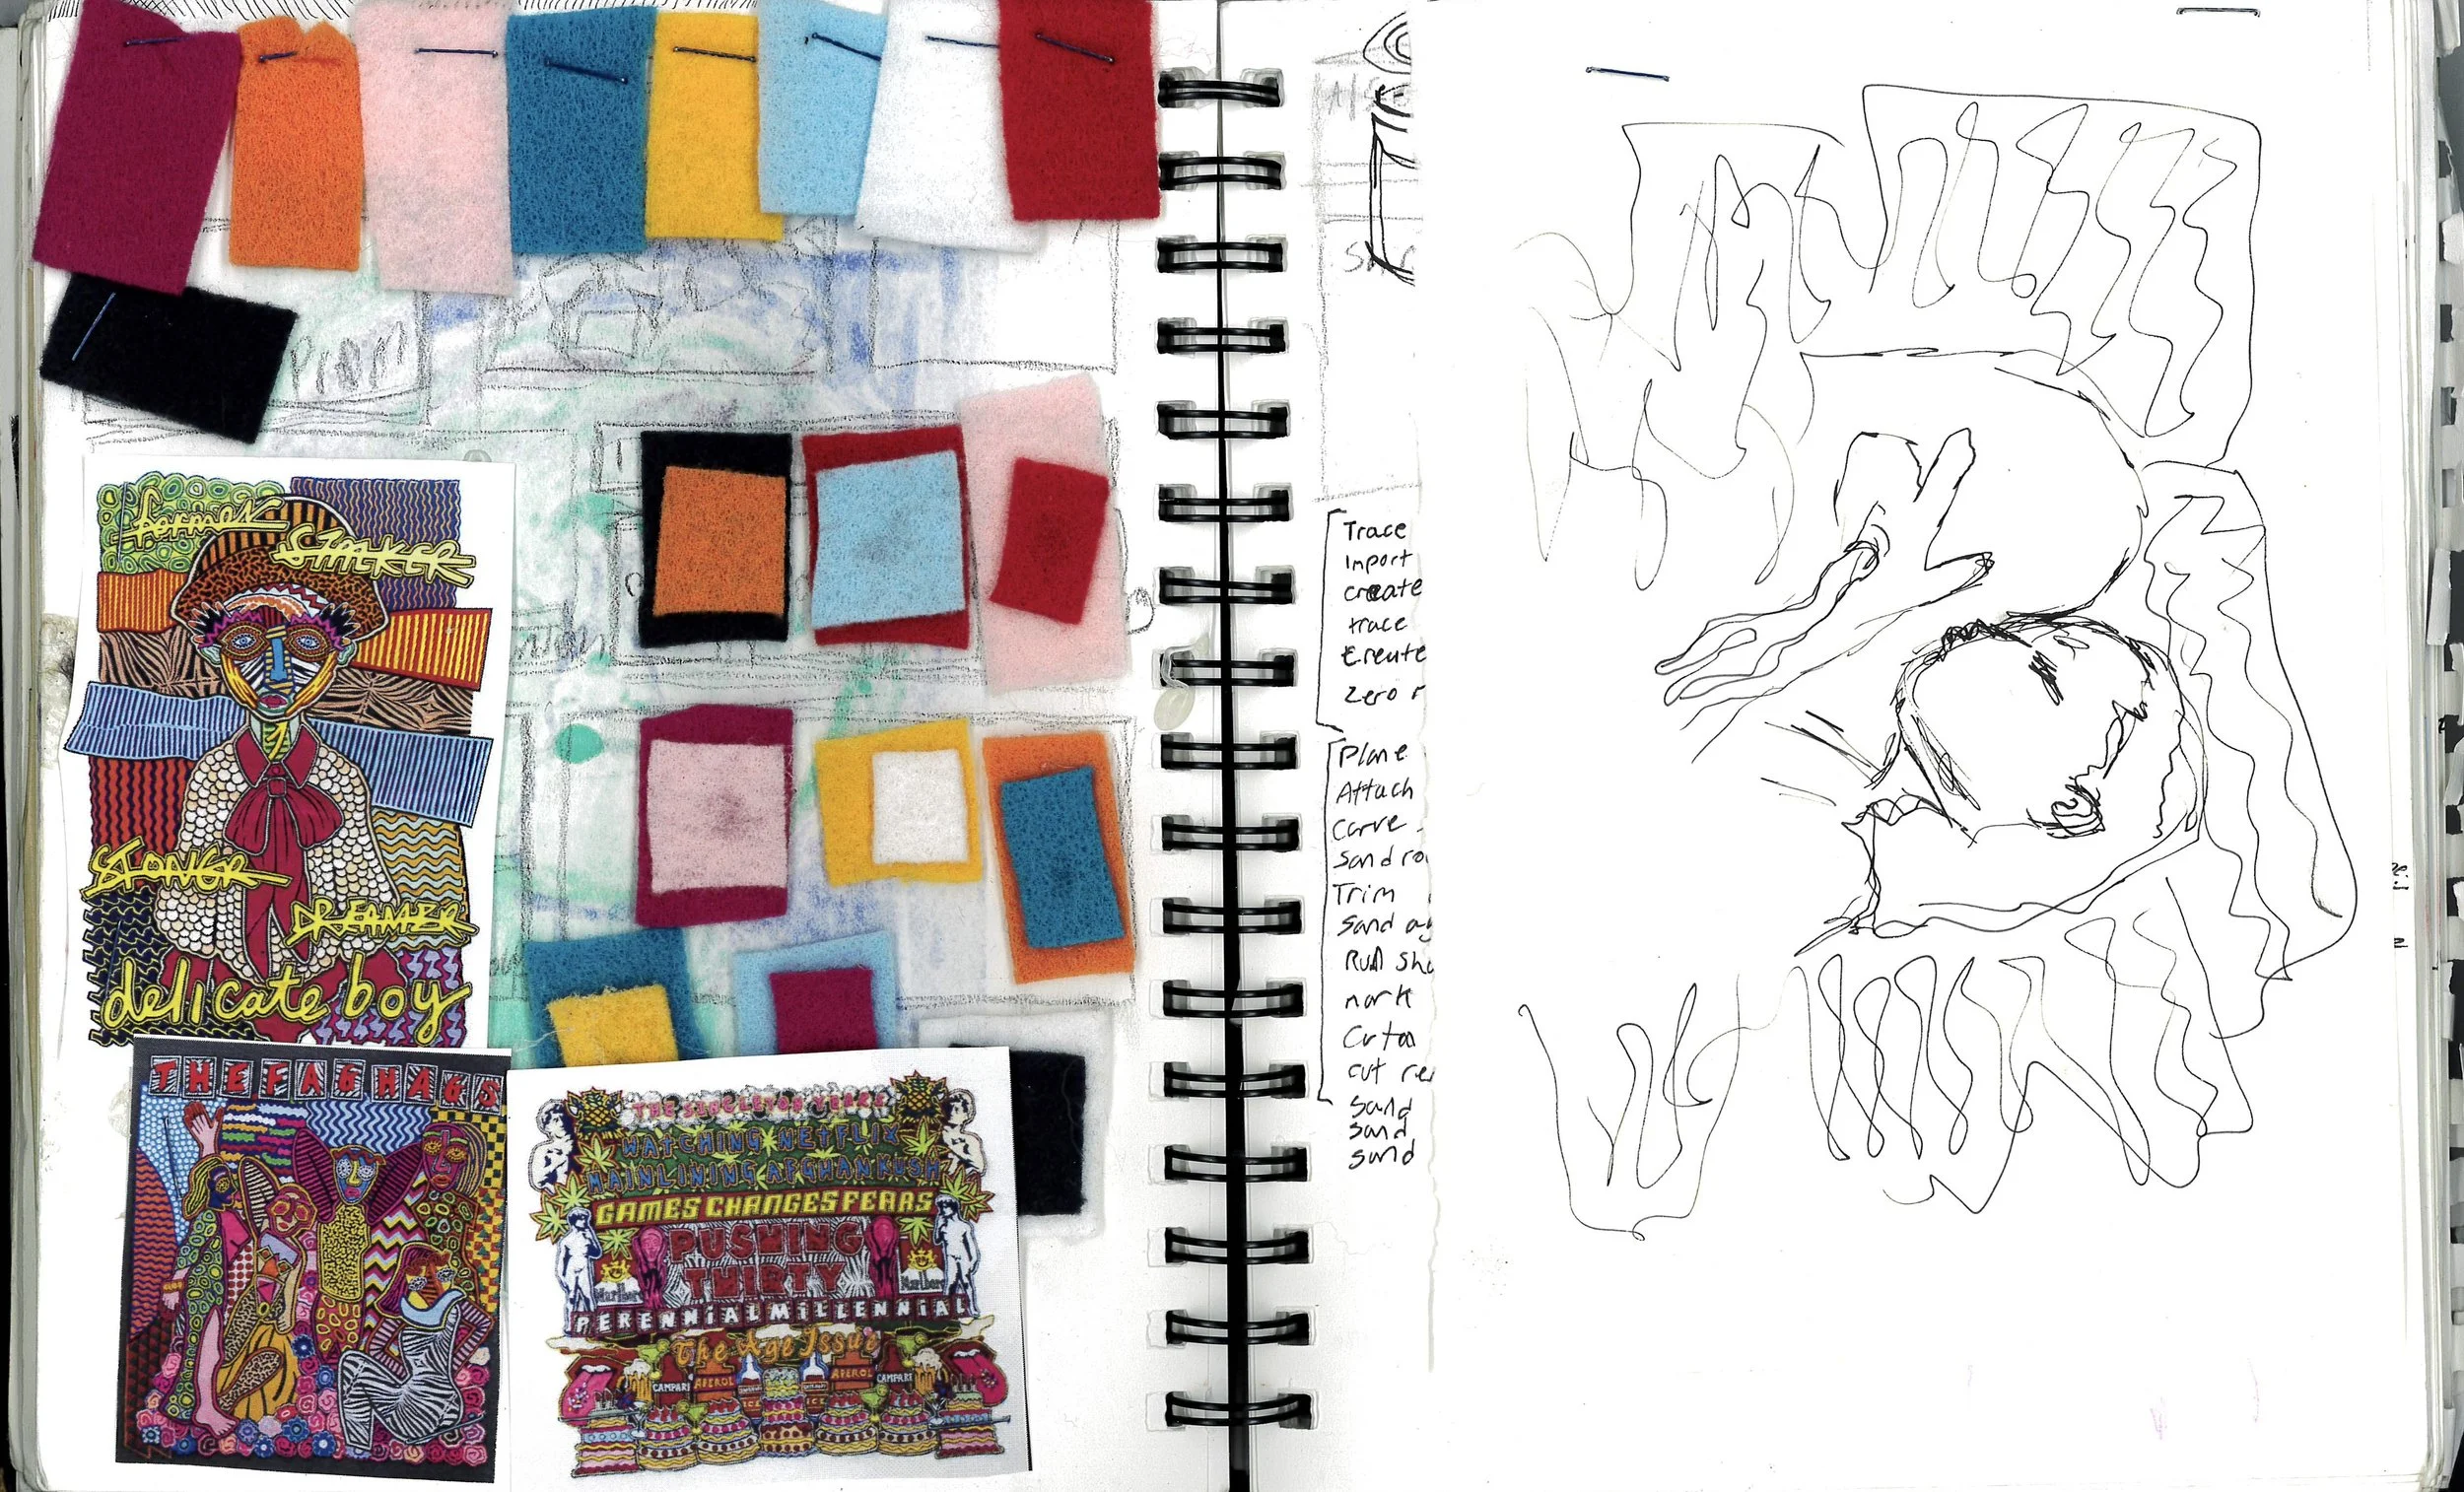 former
STALKER
STONER
DREAMER
delicate boy
THE FAG HAGS
THE SINGLETON YEARS
WATCHING NETFLIX
MAINLINING AFGHAN KUSH
GAMES CHANGES FEARS
PUSHING
THIRTY
Marlboro
Marlboro
PERENNIAL MILLENNIAL
The Age Issue
CAMPARI
APEROL
ICE
APEROL
CAMPARI
Trace
Import
create
trace
Create
Zero
Plane
Attach
Carve
Sand
Trim
Sand
Run
mark
Cut
cut
Sand
Sand
Sand